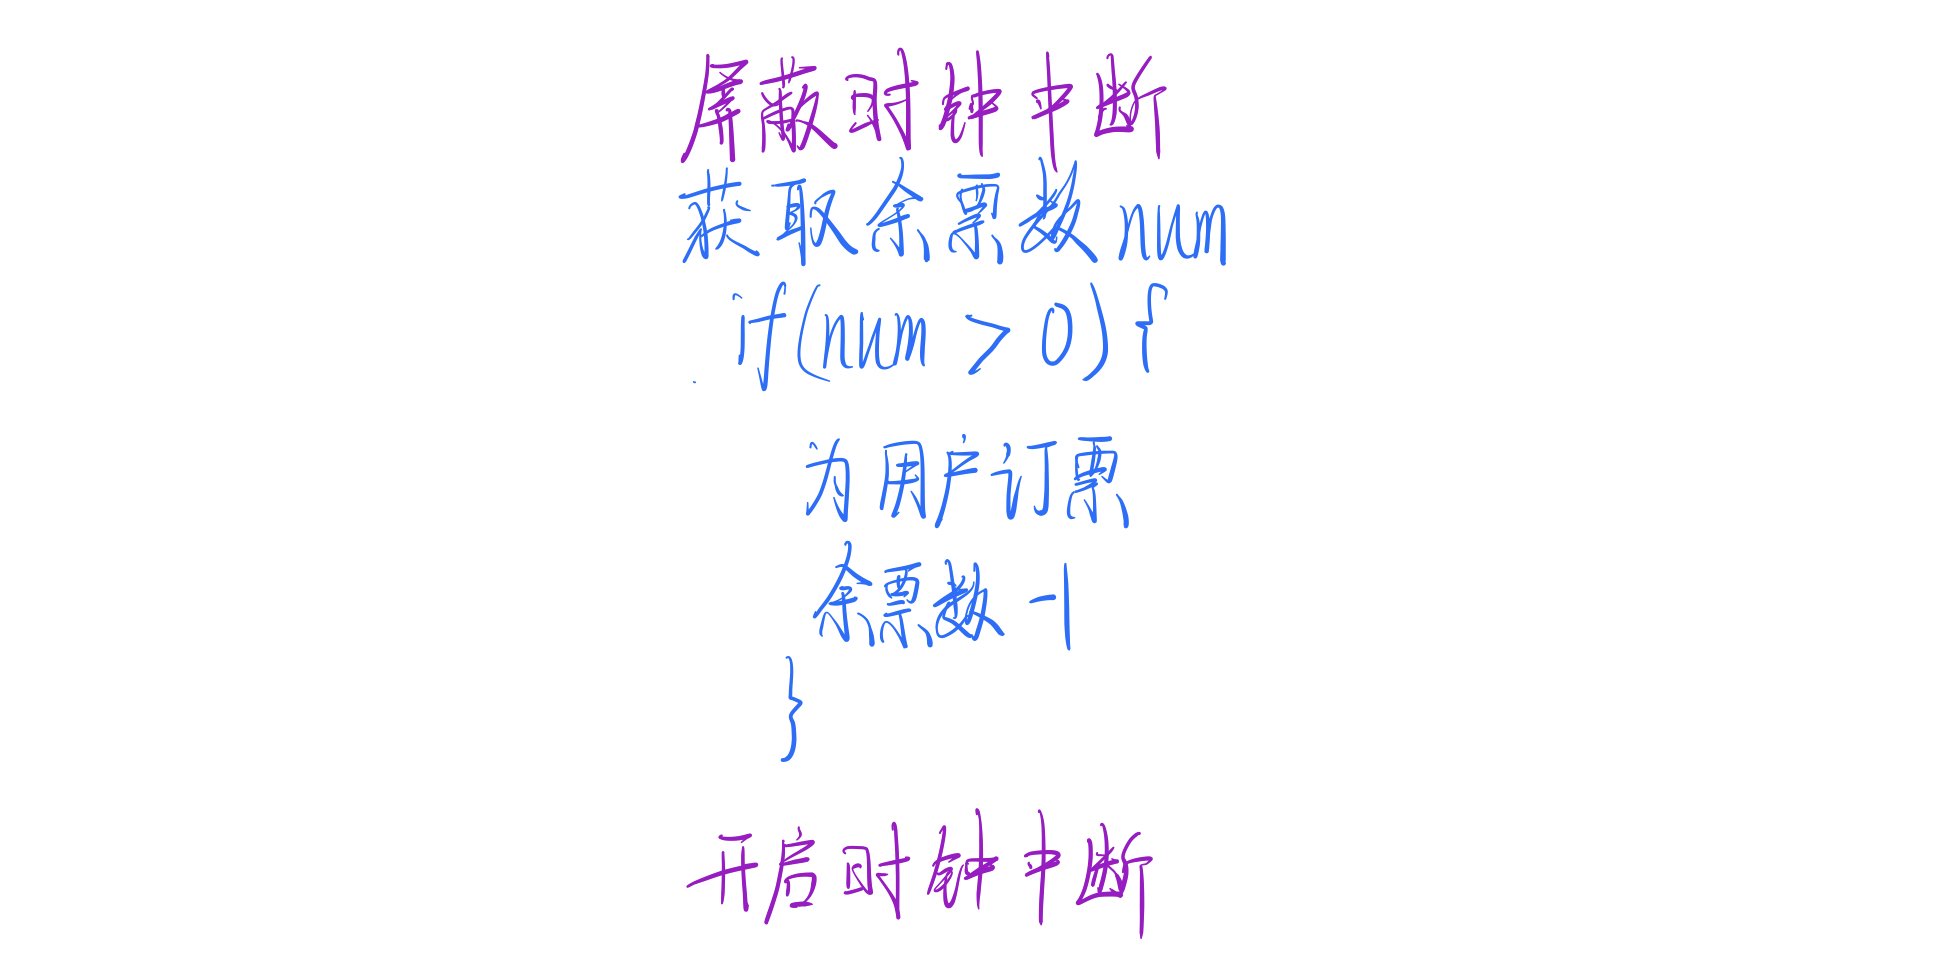 屏蔽时钟中断
获取余票数num
if(num > 0){
为用户订票
余票数-1
}
开启时钟中断